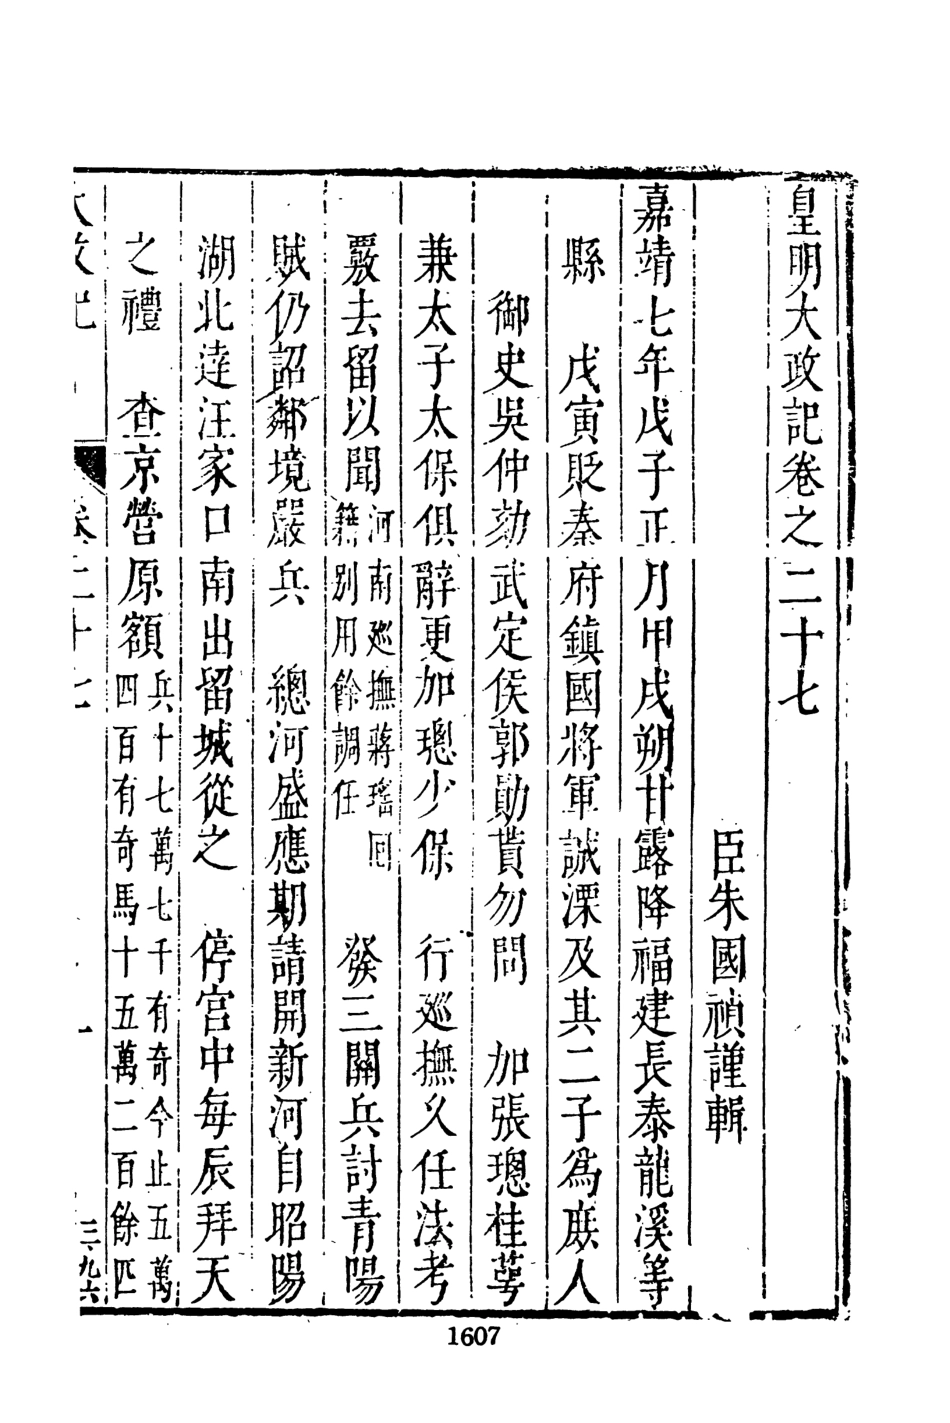 皇明大政記卷之二十七
臣朱國禎謹輯
嘉靖七年戊子正月甲戌朔甘露降福建長泰龍溪等
縣　戊寅貶秦府鎮國將軍誠溧及其二子爲庶人
御史吳仲劾武定侯郭勛貰勿問　加張璁桂萼
兼太子太保俱辭更加璁少保　行巡撫久任法考
覈去留以聞河南巡撫蔣瑤回籍別用餘調任　發三關兵討青陽
賊仍詔鄰境嚴兵　總河盛應期請開新河自昭陽
湖北達汪家口南出留城從之　停宮中每辰拜天
之禮　查京營原額兵十七萬七千有奇今止五萬四百有奇馬十五萬二百餘匹
大政記　卷二十七　一　三九六
1607